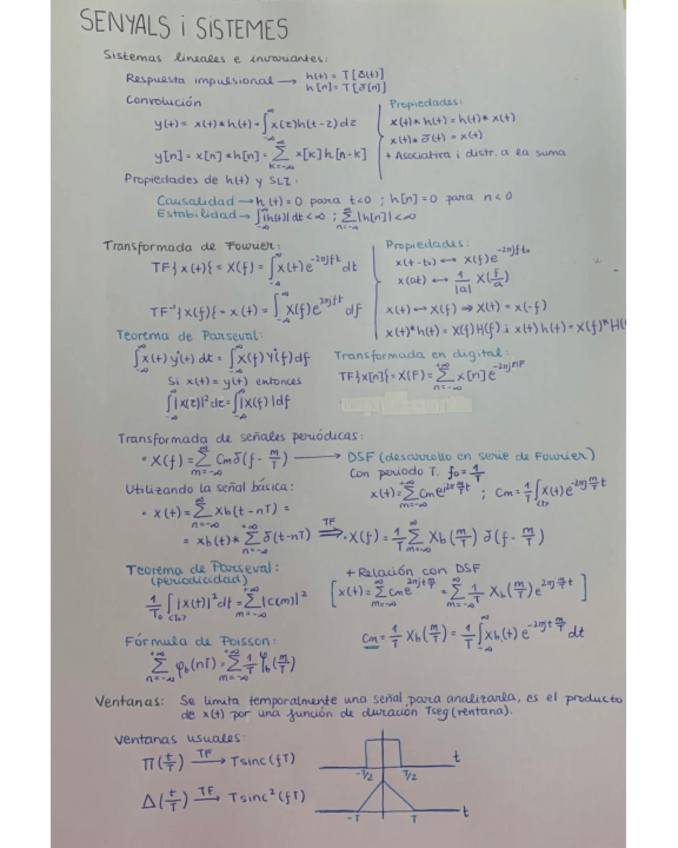 SENYALS i SISTEMES
Sistemas lineales e invariantes:
Respuesta impulsional → h(t) = T[δ(t)]
h[n] = T[δ[n]]
Convolución
y(t) = x(t)*h(t) = ∫_{-∞}^{∞} x(z)h(t-z)dz
y[n] = x[n]*h[n] = Σ_{k=-∞}^{∞} x[k]h[n-k]
Propiedades:
x(t)*h(t) = h(t)*x(t)
x(t)*δ(t) = x(t)
+ Asociativa i distr. a la suma
Propiedades de h(t) y SLI:
Causalidad → h(t) = 0 para t<0 ; h[n] = 0 para n<0
Estabilidad → ∫_{-∞}^{∞} |h(t)|dt < ∞ ; Σ_{n=-∞}^{∞} |h[n]| < ∞
Transformada de Fourier:
TF{x(t)} = X(f) = ∫_{-∞}^{∞} x(t)e^{-2πjft} dt
TF⁻¹{X(f)} = x(t) = ∫_{-∞}^{∞} X(f)e^{2πjft} df
Propiedades:
x(t-t₀) ↔ X(f)e^{-2πjft₀}
x(at) ↔ 1/|a| X(f/a)
x(t) ↔ X(f) ⇒ X(t) = x(-f)
x(t)*h(t) = X(f)H(f) i x(t)h(t) = X(f)*H(
Teorema de Parseval:
∫_{-∞}^{∞} x(t)y*(t)dt = ∫_{-∞}^{∞} X(f)Y*(f)df
Si x(t) = y(t) entonces
∫_{-∞}^{∞} |x(z)|²dz = ∫_{-∞}^{∞} |X(f)|df
Transformada en digital:
TF{x[n]} = X(F) = Σ_{n=-∞}^{∞} x[n]e^{-2πjnF}
Transformada de señales periódicas:
• X(f) = Σ_{m=-∞}^{∞} Cm δ(f - m/T) → DSF (desarrollo en serie de Fourier)
Con periodo T. f₀ = 1/T
x(t) = Σ_{m=-∞}^{∞} Cm e^{j2π m/T t} ; Cm = 1/T ∫_{<T>} x(t)e^{-2πj m/T t}
Utilizando la señal básica:
• x(t) = Σ_{n=-∞}^{∞} xb(t-nT) =
= xb(t)* Σ_{n=-∞}^{+∞} δ(t-nT) ⇒^{TF} • X(f) = 1/T Σ_{m=-∞}^{∞} Xb(m/T) δ(f - m/T)
Teorema de Parseval:
(periodicidad)
1/T₀ ∫_{<T₀>} |x(t)|²dt = Σ_{m=-∞}^{+∞} |c(m)|²
+ Relación con DSF
[x(t) = Σ_{m=-∞}^{∞} Cm e^{2πjt m/T} = Σ_{m=-∞}^{∞} 1/T Xb(m/T) e^{2πj m/T t}]
Cm = 1/T Xb(m/T) = 1/T ∫_{-∞}^{∞} xb(t) e^{-2πjt m/T} dt
Fórmula de Poisson:
Σ_{n=-∞}^{+∞} φb(nT) = Σ_{m=-∞}^{+∞} 1/T φb(m/T)
Ventanas: Se limita temporalmente una señal para analizarla, es el producto
de x(t) por una función de duración Tseg (ventana).
Ventanas usuales:
Π(t/T) →^{TF} Tsinc(fT)
-T/2 T/2 t
Δ(t/T) →^{TF} Tsinc²(fT)
-T T t